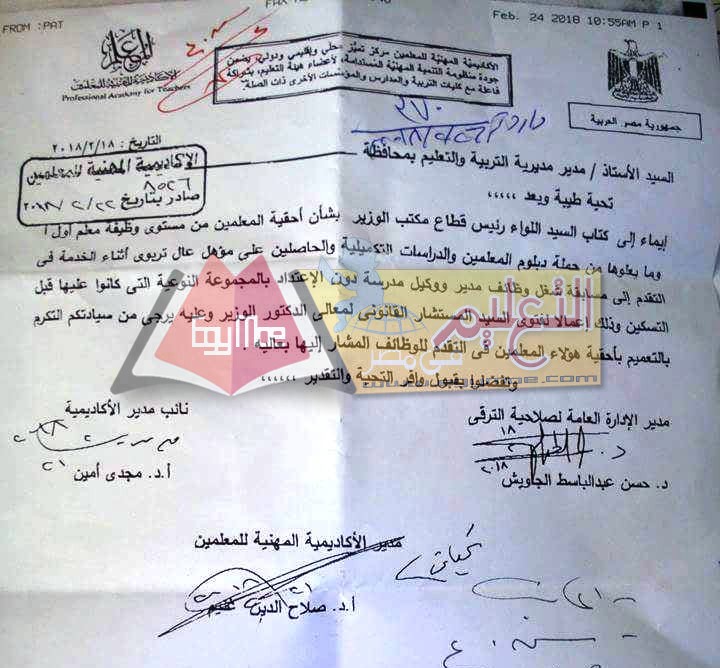 FROM :PAT
Feb. 24 2018 10:55AM P 1
الأكاديمية المهنية للمعلمين
Professional Academy for Teachers
الأكاديمية المهنية للمعلمين مركز تميز محلي وإقليمي ودولي، يضمن
جودة منظومة التنمية المهنية المستدامة، لأعضاء هيئة التعليم، بشراكة
فاعلة مع كليات التربية والمدارس والمؤسسات الأخرى ذات الصلة.
جمهورية مصر العربية
التاريخ: ٢٠١٨/٢/١٨
الأكاديمية المهنية للمعلمين
صادر بتاريخ ٢٢/٢/٢٠١٨
السيد الأستاذ / مدير مديرية التربية والتعليم بمحافظة
تحية طيبة وبعد ،،،،،
إيماء إلى كتاب السيد اللواء رئيس قطاع مكتب الوزير بشأن أحقية المعلمين من مستوى وظيفة معلم أول أ
وما يعلوها من حملة دبلوم المعلمين والدراسات التكميلية والحاصلين على مؤهل عال تربوى أثناء الخدمة فى
التقدم إلى مسابقة شغل وظائف مدير ووكيل مدرسة دون الإعتداد بالمجموعة النوعية التى كانوا عليها قبل
التسكين وذلك إعمالا لفتوى السيد المستشار القانونى لمعالى الدكتور الوزير وعليه يرجى من سيادتكم التكرم
بالتعميم بأحقية هؤلاء المعلمين فى التقدم للوظائف المشار إليها بعاليه .
وتفضلوا بقبول وافر التحية والتقدير ،،،،،،
التعليم
فى مصر
مدير الإدارة العامة لصلاحية الترقى
د. حسن عبدالباسط الجاويش
نائب مدير الأكاديمية
أ.د. مجدى أمين
مدير الأكاديمية المهنية للمعلمين
أ.د. صلاح الدين غنيم